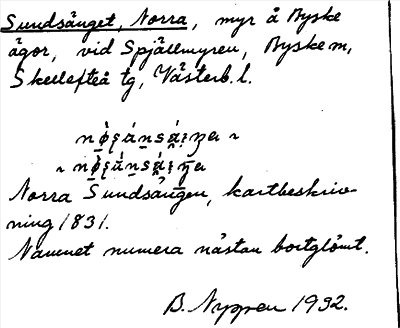 Sundsänget, Norra, myr å Byske
ägor, vid Spjällmyren, Byske sn,
Skellefteå tg, Västerb. l.
Norra Sundsängen, kartbeskriv-
ning 1831.
Namnet numera nästan bortglömt.
B. Nygren 1932.